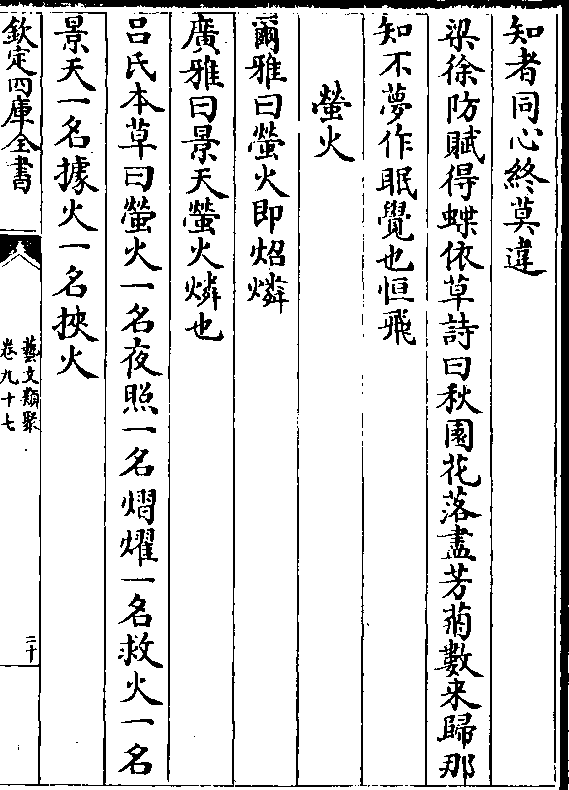 知者同心終莫違
梁徐防賦得蝶依草詩曰秋園花落盡芳菊數来歸那
知不夢作眠覺也恒飛
螢火
爾雅曰螢火即炤燐
廣雅曰景天螢火燐也
吕氏本草曰螢火一名夜照一名熠燿一名救火一名
景天一名據火一名挾火
欽定四庫全書
藝文類聚
卷九十七
二十